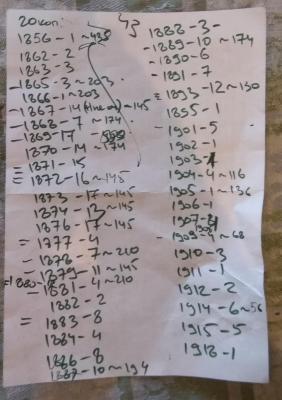 20 коп:
1856 - 1 ~ 435
1862 - 2
1863 - 3
- 1865 - 3 ~ 203.
1866 - 1 ~ 203
- 1867 - 14 ~ 145
- 1868 - 7 ~ 174
1869 - 17
1870 - 14 ~ 174
= 1871 - 15
= 1872 - 16 ~ 145
1873 - 17 ~ 145
1874 - 13 ~ 145
1876 - 17 ~ 145
= 1877 - 4
- 1878 - 7 ~ 210
= 1879 - 11 ~ 145
- 1881 - 4 ~ 210
1882 - 2
= 1883 - 8
1884 - 4
1886 - 8
1887 - 10 ~ 194
1888 - 3 -
- 1889 - 10 ~ 174
- 1890 - 6
- 1891 - 7
= 1893 - 12 ~ 130
1895 - 1
- 1901 - 5
1902 - 1
1903 - 1
1904 - 4 ~ 116
1905 - 1 ~ 136
1906 - 1
1907 -
1908
- 1909 - 4 ~ 68
1910 - 3
1911 - 1
1912 - 2
1914 - 6 ~ 56
1915 - 5
1913 - 1